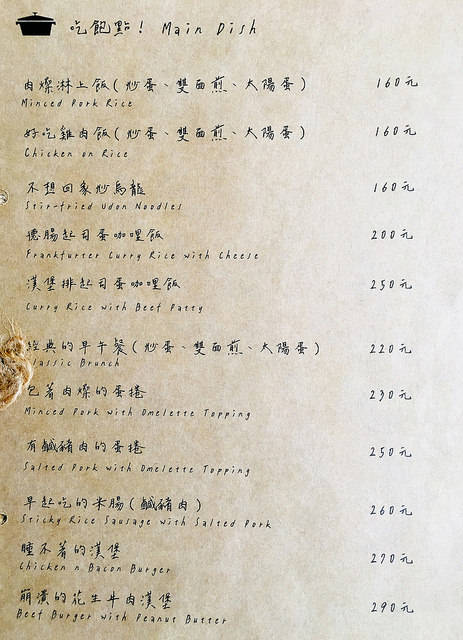 吃飽點! Main Dish
肉燥淋上飯(炒蛋、雙面煎、太陽蛋) 160元
Minced Pork Rice
好吃雞肉飯(炒蛋、雙面煎、太陽蛋) 160元
Chicken on Rice
不想回家炒烏龍 160元
Stir-fried Udon Noodles
德腸起司蛋咖哩飯 200元
Frankfurter Curry Rice with Cheese
漢堡排起司蛋咖哩飯 250元
Curry Rice with Beef Patty
經典的早午餐(炒蛋、雙面煎、太陽蛋) 220元
Classic Brunch
包著肉燥的蛋捲 230元
Minced Pork with Omelette Topping
有鹹豬肉的蛋捲 250元
Salted Pork with Omelette Topping
早起吃的米腸(鹹豬肉) 260元
Sticky Rice Sausage with Salted Pork
睡不著的漢堡 270元
Chicken n Bacon Burger
崩潰的花生牛肉漢堡 290元
Beef Burger with Peanut Butter